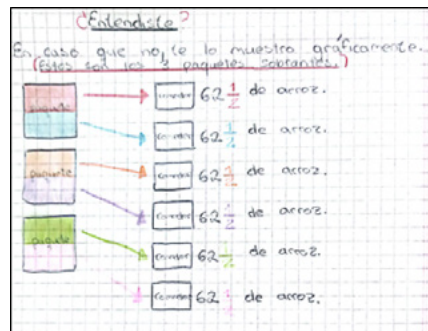 ¿Entendiste?
En caso que no, te lo muestro gráficamente...
(Estos son los 3 paquetes sobrantes.)
paquete
comedor 62 1/2 de arroz.
comedor 62 1/2 de arroz.
paquete
comedor 62 1/2 de arroz.
comedor 62 1/2 de arroz.
paquete
comedor 62 1/2 de arroz.
comedor 62 1/2 de arroz.